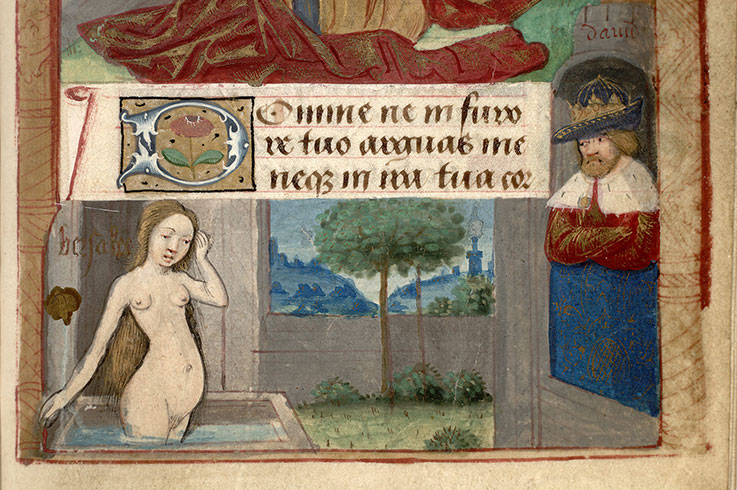 dauid
Domine ne in furo
re tuo arguas me
neqꝫ in ira tua cor